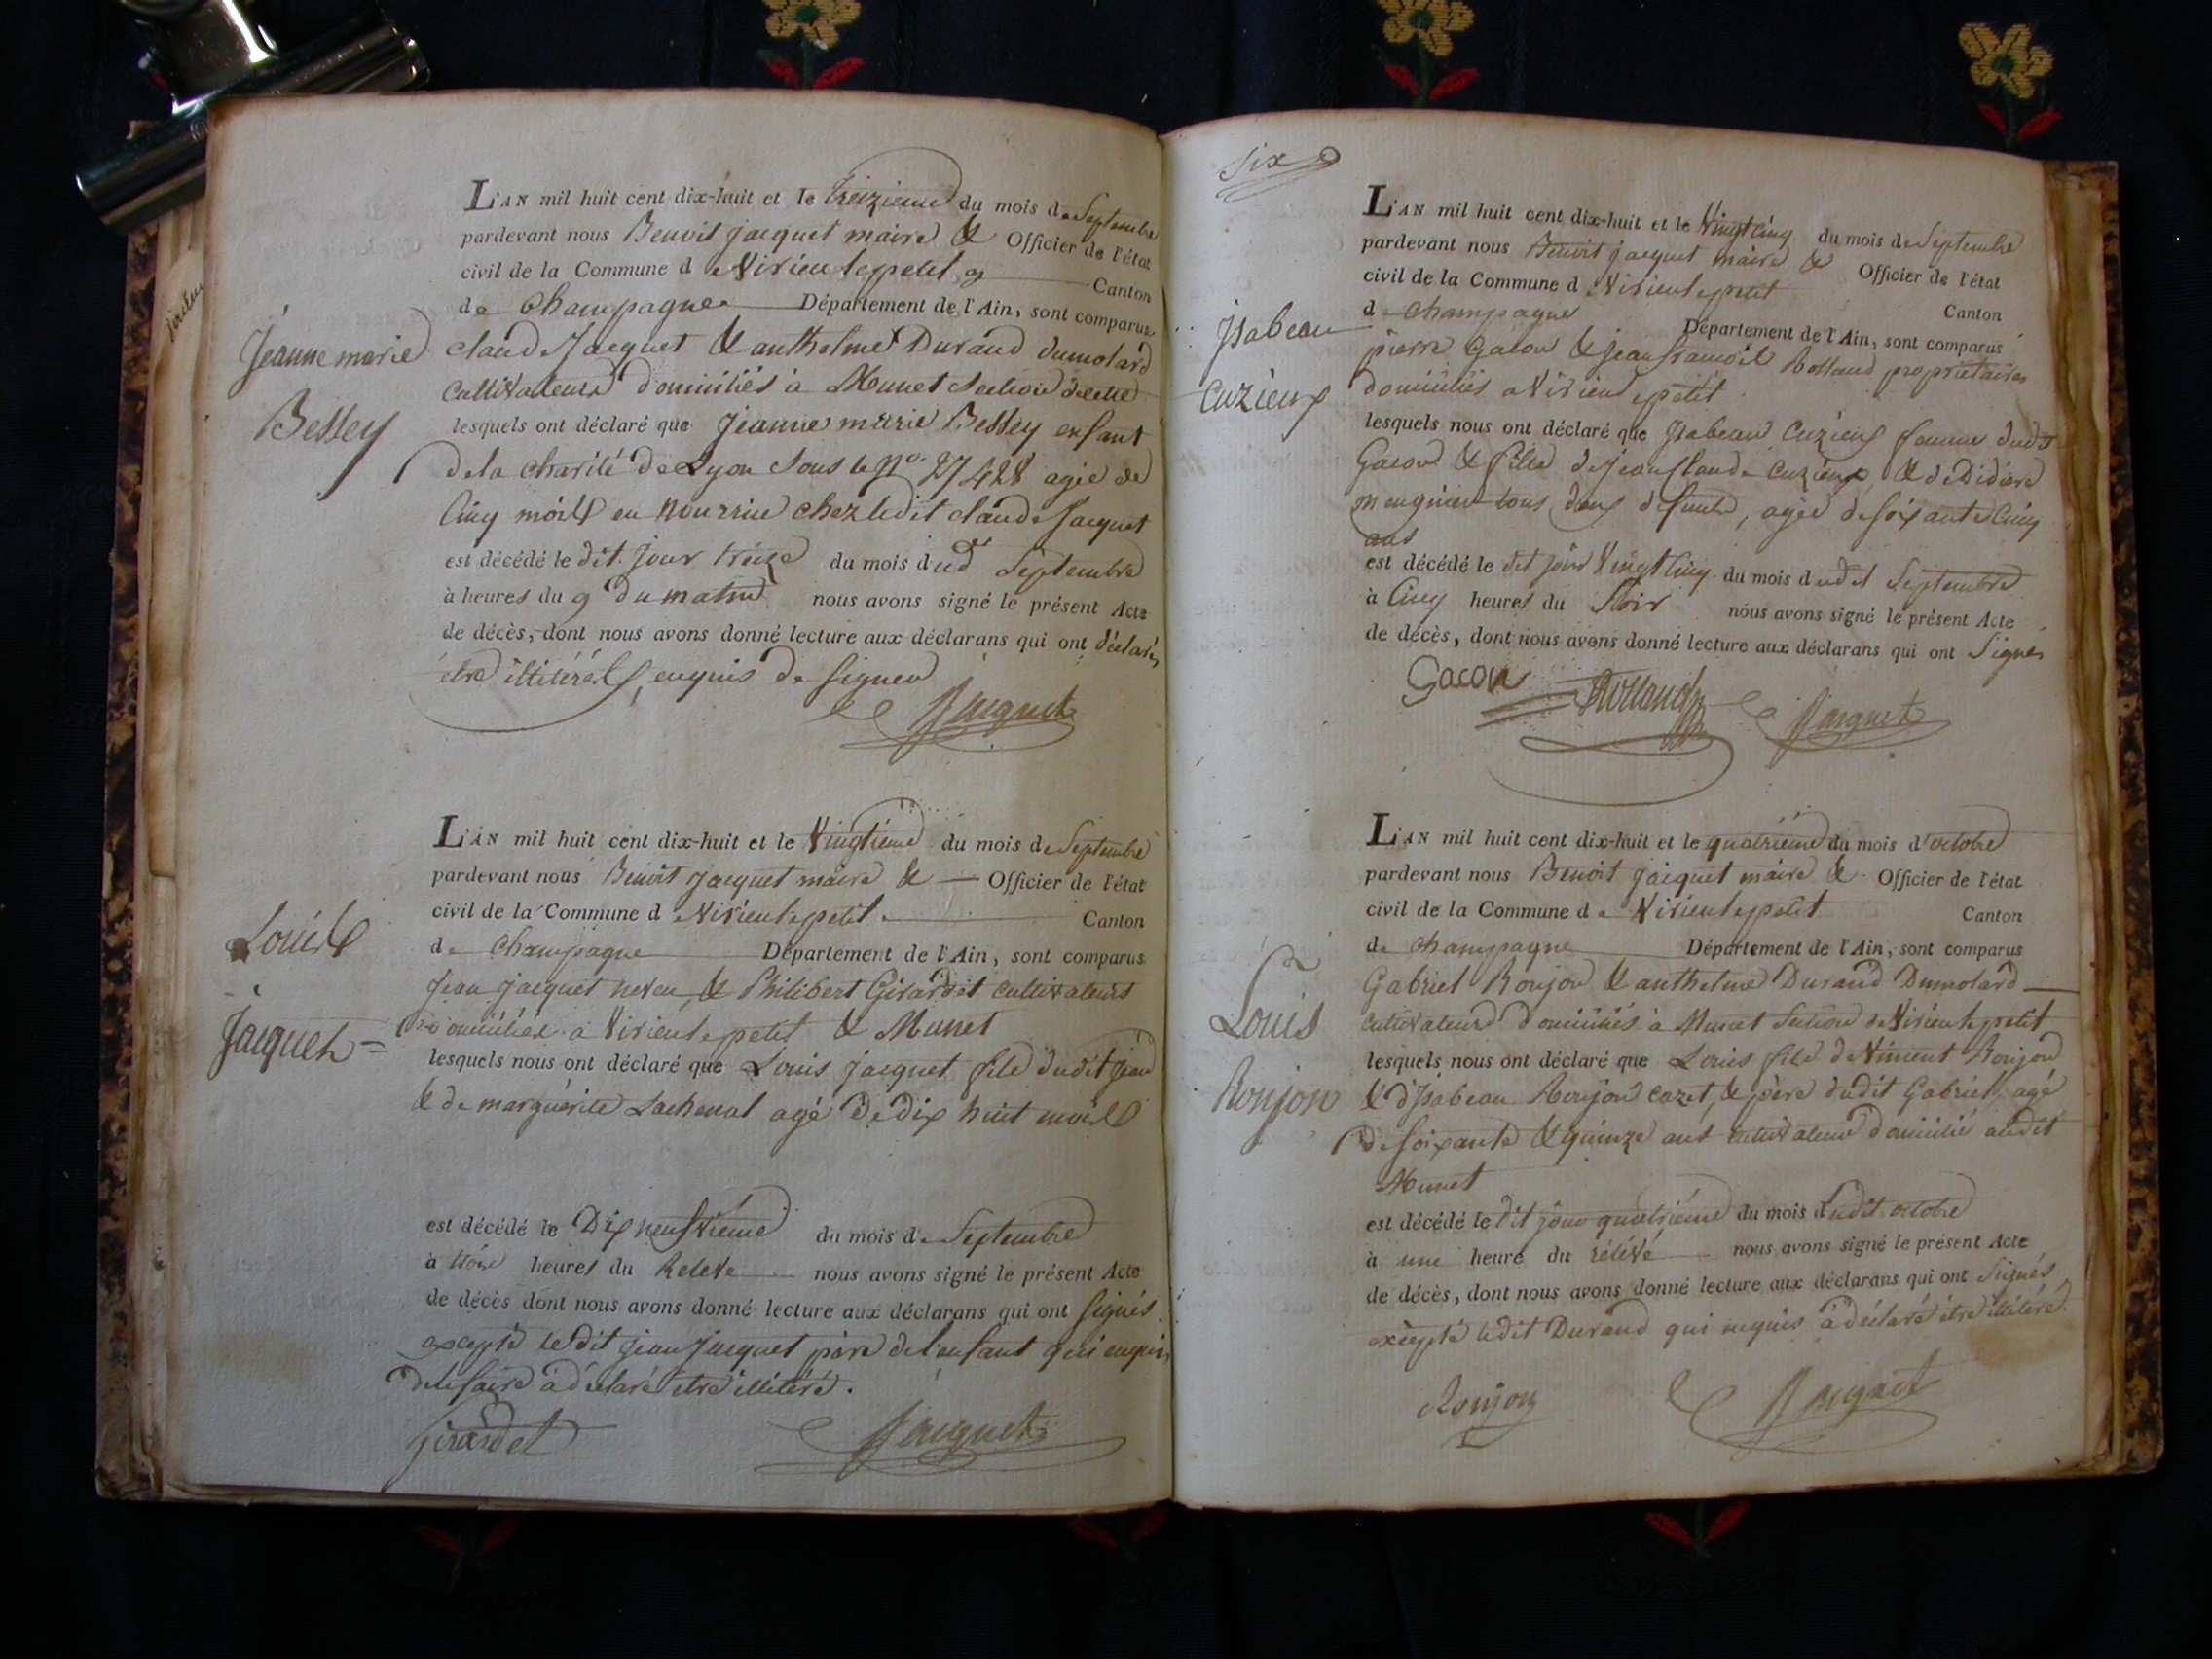 Jeanne marie
Bessey
L'AN mil huit cent dix-huit et le treizieme du mois de Septembre
pardevant nous Benoit jacquet maire & Officier de l'état
civil de la Commune de Virieu le petit Canton
de Champagne Département de l'Ain, sont comparus
claude Jacquet & anthelme Durand dumolard
Cultivateurs domiciliés à Munet Section
lesquels ont déclaré que jeanne marie Bessey enfant
de la charité de Lyon sous le no. 27428 agée de
Cinq mois en nourrice chez ledit claude Jacquet
est décédé le dit jour treize du mois dud Septembre
à heures du 9 du matin nous avons signé le présent Acte
de décès, dont nous avons donné lecture aux déclarans qui ont déclarés
être illiterés, enquis de signer
Jacquet
Louis
Jacquet =
L'AN mil huit cent dix-huit et le Vingtieme du mois de Septembre
pardevant nous Benoit jacquet maire & Officier de l'état
civil de la Commune de Virieu le petit Canton
de Champagne Département de l'Ain, sont comparus
Jean jacquet neveu, & Philibert Girardet cultivateurs
domiciliés à Virieu le petit & Munet
lesquels nous ont déclaré que Louis jacquet fils dudit jean
& de marguerite Lachenal agé de dix huit mois
est décédé le Dix neuvieme du mois de Septembre
à trois heures du Releve nous avons signé le présent Acte
de décès dont nous avons donné lecture aux déclarans qui ont signés
excepté ledit jean jacquet père de l'enfant qui enquis
de le faire a déclaré etre illiteré.
Girardet Jacquet
Six
Isabeau
Cuzieux
L'AN mil huit cent dix-huit et le Vingt Cinq du mois de Septembre
pardevant nous Benoit jacquet maire & Officier de l'état
civil de la Commune de Virieu le petit Canton
de Champagne Département de l'Ain, sont comparus
pierre Gacon & jean francois Rolland proprietaires
domiciliés a Virieu le petit
lesquels nous ont déclaré que Isabeau Cuzieux femme dudt
Gacon & fille de jean Claude Cuzieux, & de Didiere
tous deux defunts, agée de soixante Cinq
ans
est décédé le dit jour Vingt Cinq du mois dudit Septembre
à Cinq heures du Soir nous avons signé le présent Acte
de décès, dont nous avons donné lecture aux déclarans qui ont Signés
Gacon Rolland Jacquet
Louis
Ronjon
L'AN mil huit cent dix-huit et le quatrieme du mois d'octobre
pardevant nous Benoit jacquet maire & Officier de l'état
civil de la Commune de Virieu le petit Canton
de Champagne Département de l'Ain, sont comparus
Gabriel Ronjon & anthelme Durand Dumolard
cultivateurs domiciliés à Munet Section de Virieu le petit
lesquels nous ont déclaré que Louis fils de Vincent Ronjon
& d'Isabeau Ronjon cozet, & père dudit Gabriel, agé
de soixante & quinze ans cultivateur domicilié audit
Munet
est décédé le dit jour quatrieme du mois dudit octobre
à une heure du rélévé nous avons signé le présent Acte
de décès, dont nous avons donné lecture aux déclarans qui ont Signés
excepté ledit Durand qui requis a déclaré être illiteré.
Ronjon Jacquet